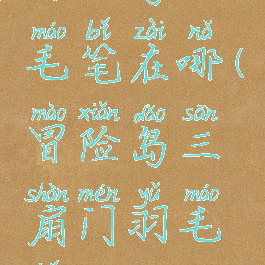 máo bǐ zài nǎ
毛笔在哪(
mào xiǎn dǎo sān
冒险岛三
shàn mén yǔ máo
扇门羽毛